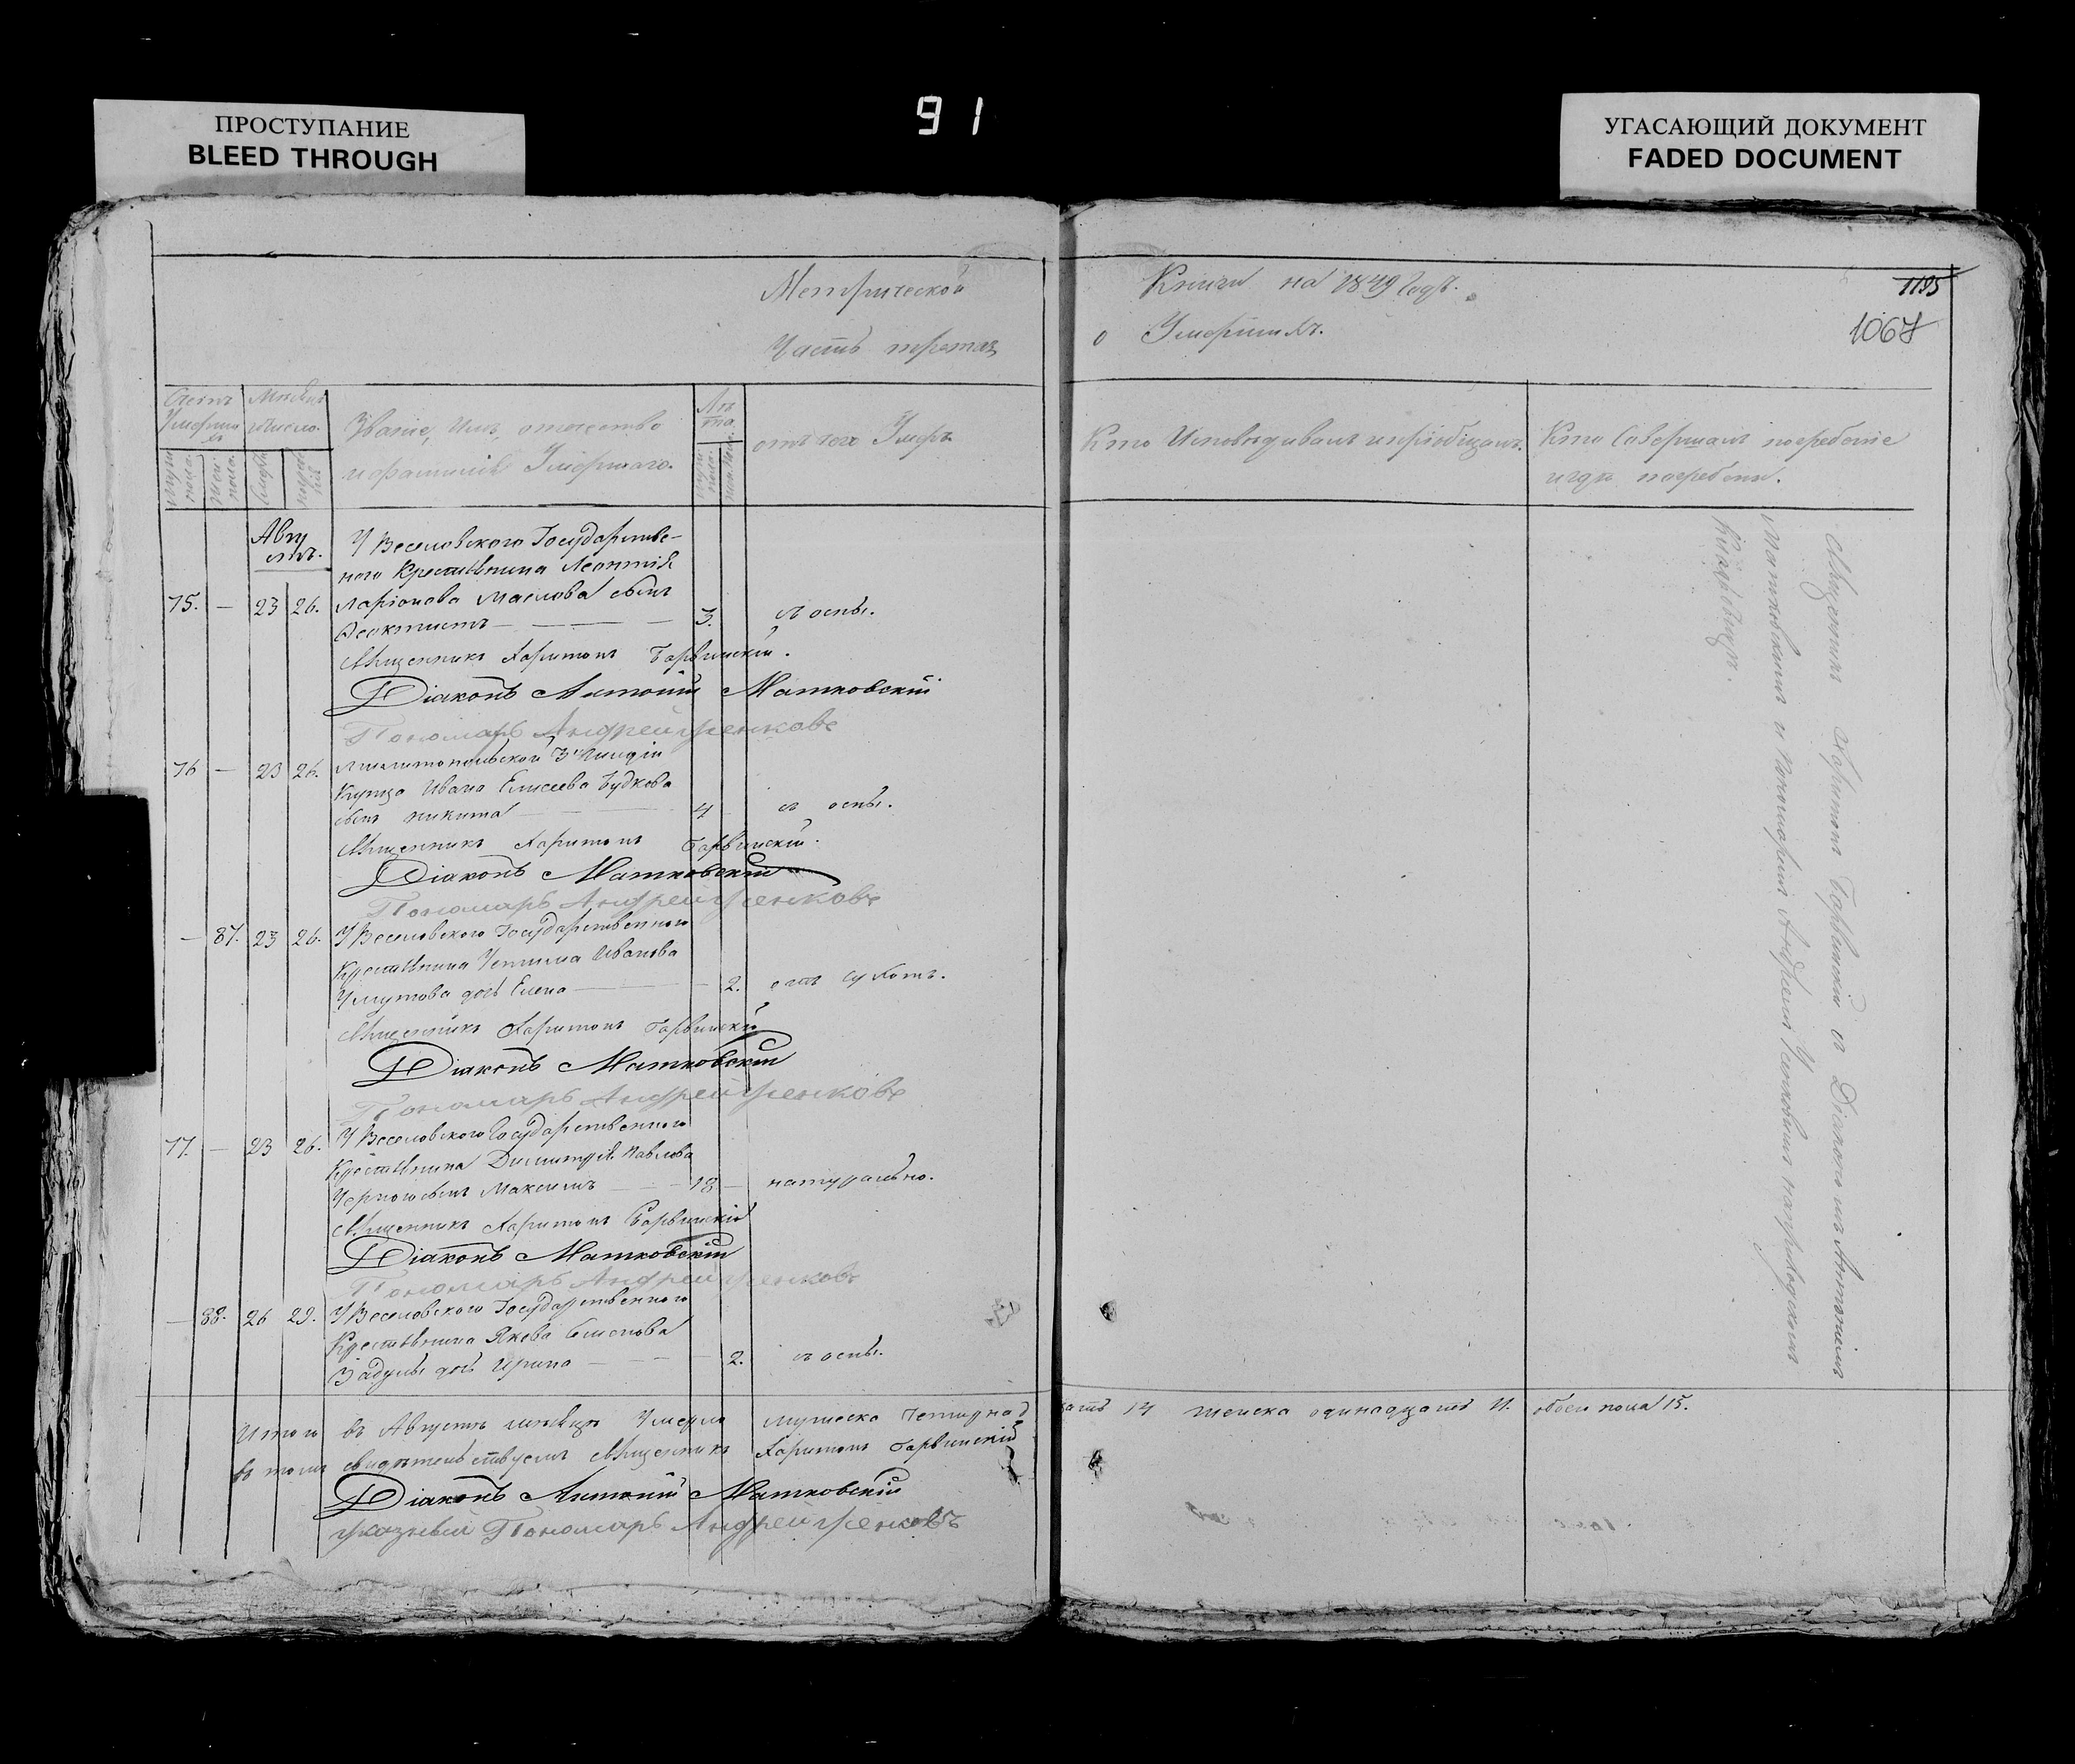 91
ПРОСТУПАНИЕ
BLEED THROUGH
УГАСАЮЩИЙ ДОКУМЕНТ
FADED DOCUMENT
Метрической Книги на 1849 Годъ.
1195
Часть третая о Умершихъ.
1067
Счетъ Умерших
Мужеска пола.
Женска пола.
Мѣсяцъ и Число.
Званіе, Имя, отечество
и фамилія Умершаго.
Лѣта.
отъ чего Умеръ
Кто Исповѣдивалъ и пріобщалъ.
Кто Совершалъ погребеніе
и гдѣ погребены.
Августъ.
У Веселовского Государстве-
ного Крестьянина Леонтія
75. — 23 26. Ларіонова Маслова сынъ
Феоктистъ — 3. съ оспы.
Священникъ Харитонъ Барвинскій.
Діаконъ Антоній Матковскій
Пономарь Андрей
76 — 23 26. Мелитопольского 3й Гилдіи
Купца Ивана Елисеева Будкова
сынъ Никита — 4 съ оспы.
Священникъ Харитонъ Барвинскій.
Діаконъ Матковскій
Пономарь Андрей
— 87. 23 26. У Веселовского Государственного
Крестьянина Ивановa
дочь Елена — 2. отъ сухотъ.
Священникъ Харитонъ Барвинскій
Діаконъ Матковскій
Пономарь Андрей
77. — 23 26. У Веселовского Государственного
Крестьянина Димитрія Павлова
сынъ Максимъ — 18 — натурально.
Священникъ Харитонъ Барвинскій
Діаконъ Матковскій
Пономарь Андрей
— 88. 26 29. У Веселовского Государственного
Крестьянина Якова Семенова
дочь Ирина — 2. съ оспы.
Итого въ Августѣ мѣсяцѣ Умерло мужеска четырнадцать 14 женска одинадцать 11. обоего пола 15.
въ томъ свидѣтельствуемъ Священникъ Харитонъ Барвинскій
Діаконъ Антоній Матковскій
Указный Пономарь Андрей
Священникъ Харитонъ Барвинскій съ Діакономъ Антоніемъ
Матковскимъ и пономаремъ Андреемъ на приходскомъ
Кладбищѣ.